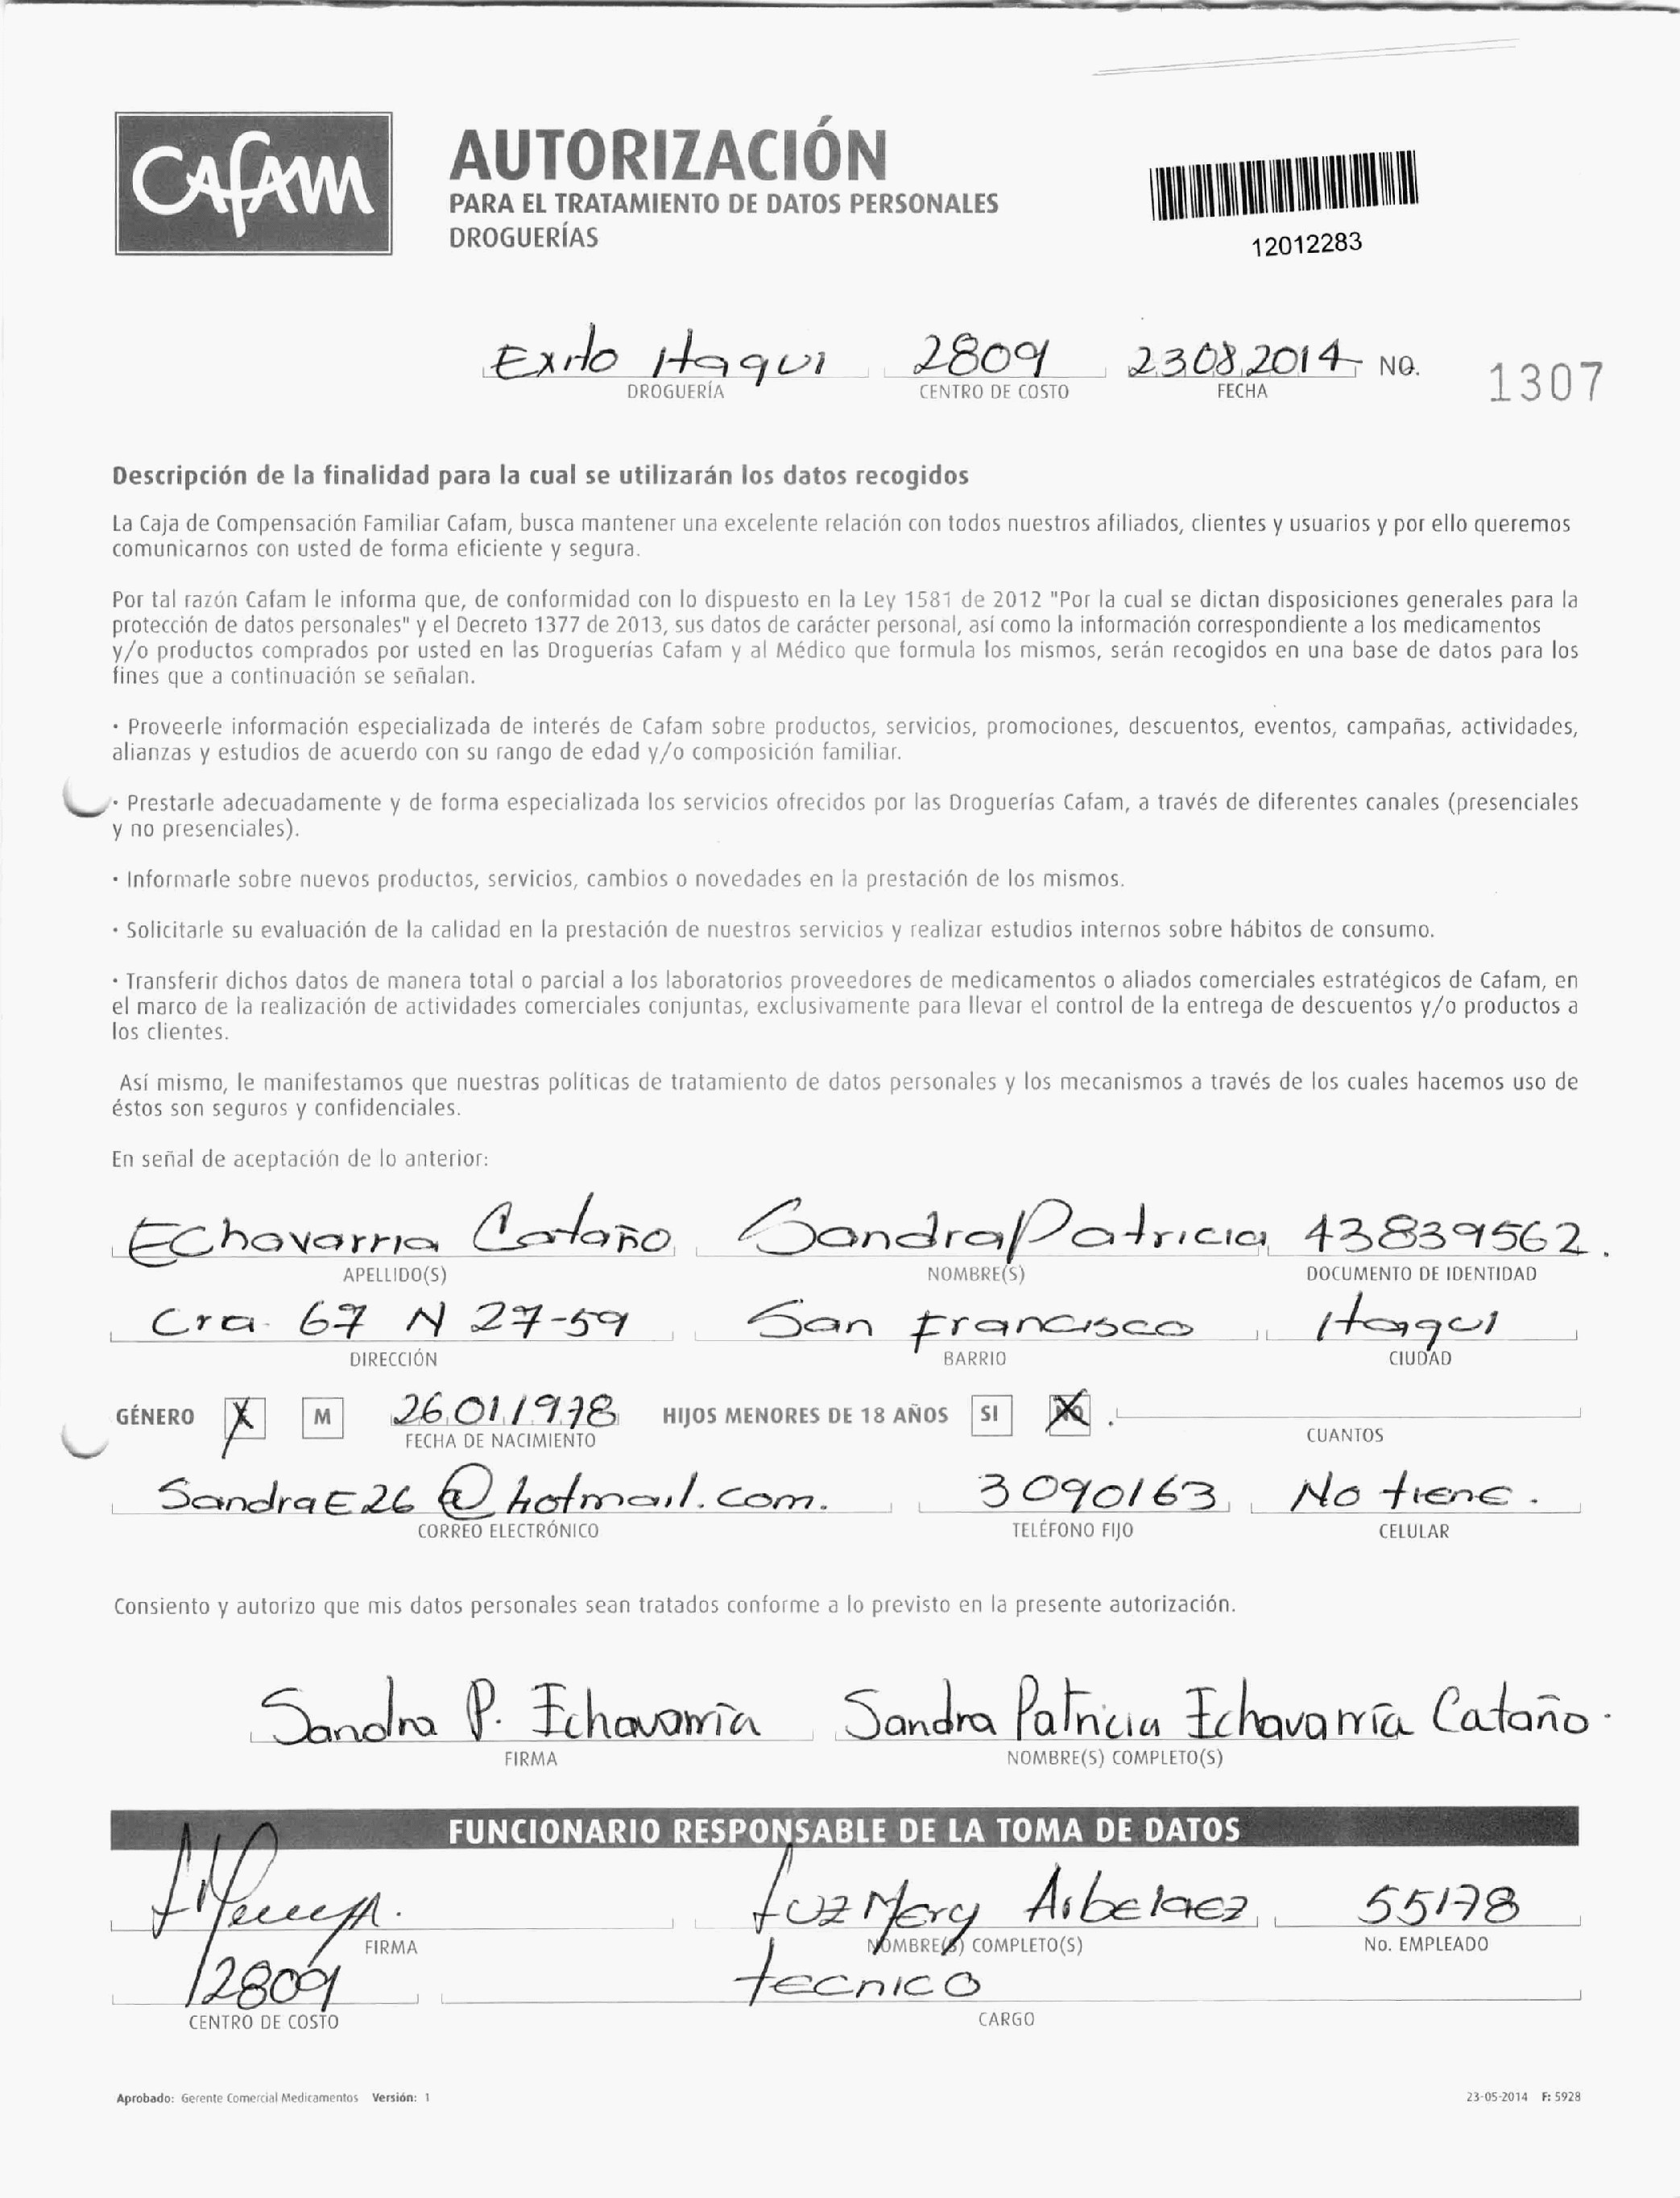 CAFAM
AUTORIZACIÓN
PARA EL TRATAMIENTO DE DATOS PERSONALES
DROGUERÍAS
12012283
Exito Itagui 2809 23.08.2014 NO. 1307
DROGUERÍA CENTRO DE COSTO FECHA
Descripción de la finalidad para la cual se utilizarán los datos recogidos
La Caja de Compensación Familiar Cafam, busca mantener una excelente relación con todos nuestros afiliados, clientes y usuarios y por ello queremos
comunicarnos con usted de forma eficiente y segura.
Por tal razón Cafam le informa que, de conformidad con lo dispuesto en la Ley 1581 de 2012 "Por la cual se dictan disposiciones generales para la
protección de datos personales" y el Decreto 1377 de 2013, sus datos de carácter personal, así como la información correspondiente a los medicamentos
y/o productos comprados por usted en las Droguerías Cafam y al Médico que formula los mismos, serán recogidos en una base de datos para los
fines que a continuación se señalan.
· Proveerle información especializada de interés de Cafam sobre productos, servicios, promociones, descuentos, eventos, campañas, actividades,
alianzas y estudios de acuerdo con su rango de edad y/o composición familiar.
· Prestarle adecuadamente y de forma especializada los servicios ofrecidos por las Droguerías Cafam, a través de diferentes canales (presenciales
y no presenciales).
· Informarle sobre nuevos productos, servicios, cambios o novedades en la prestación de los mismos.
· Solicitarle su evaluación de la calidad en la prestación de nuestros servicios y realizar estudios internos sobre hábitos de consumo.
· Transferir dichos datos de manera total o parcial a los laboratorios proveedores de medicamentos o aliados comerciales estratégicos de Cafam, en
el marco de la realización de actividades comerciales conjuntas, exclusivamente para llevar el control de la entrega de descuentos y/o productos a
los clientes.
Así mismo, le manifestamos que nuestras políticas de tratamiento de datos personales y los mecanismos a través de los cuales hacemos uso de
éstos son seguros y confidenciales.
En señal de aceptación de lo anterior:
Echavarria Cataño Sandra Patricia 43839562.
APELLIDO(S) NOMBRE(S) DOCUMENTO DE IDENTIDAD
Cra. 67 N 27-59 San Francisco Itagui
DIRECCIÓN BARRIO CIUDAD
GÉNERO X M 26.01.1978 HIJOS MENORES DE 18 AÑOS SI NO X
FECHA DE NACIMIENTO CUANTOS
SandraE26@hotmail.com. 3090163 No tiene.
CORREO ELECTRÓNICO TELÉFONO FIJO CELULAR
Consiento y autorizo que mis datos personales sean tratados conforme a lo previsto en la presente autorización.
Sandra P. Echavarría Sandra Patricia Echavarría Cataño.
FIRMA NOMBRE(S) COMPLETO(S)
FUNCIONARIO RESPONSABLE DE LA TOMA DE DATOS
Luz Mery Arbelaez 55178
FIRMA NOMBRE(S) COMPLETO(S) No. EMPLEADO
2809 tecnico
CENTRO DE COSTO CARGO
Aprobado: Gerente Comercial Medicamentos Versión: 1 23-05-2014 F: 5928